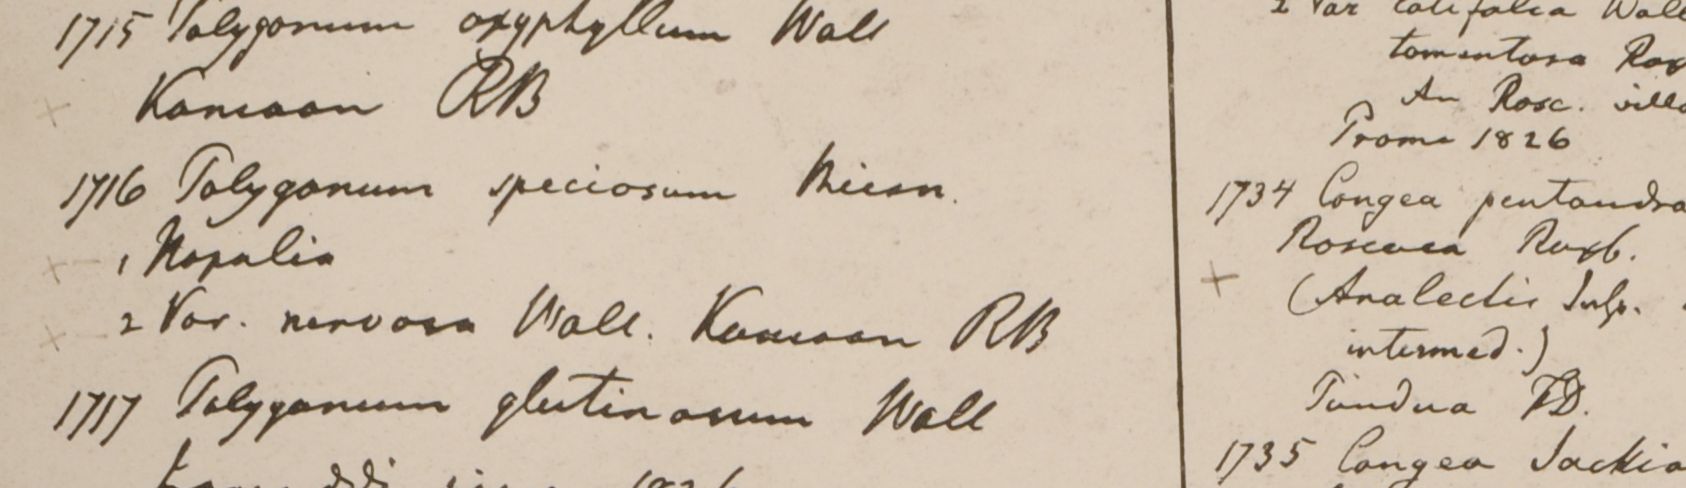 1715 Polygonum oxyphyllum Wall
Kamaon RB
1716 Polygonum speciosum Meisn.
1 Napalia
2 Var. nervosa Wall. Kamaon RB
1717 Polygonum glutinosum Wall
2 Var latifolia Wall
tomentosa Rox
An Rosc. villo
Prome 1826
1734 Congea pentandra
Roscoea Roxb.
(Analectis Insp.
intermed.)
Pundua FD.
1735 Congea Jackia